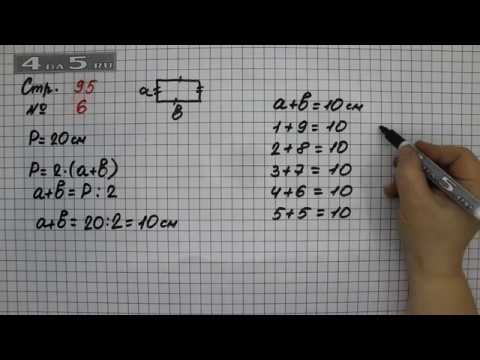 4 DA 5.RU
Стр. 95
№ 6
a
в
P = 20 см
P = 2·(a+в)
a+в = P : 2
a+в = 20:2 = 10 см
a+в = 10 см
1+9 = 10
2+8 = 10
3+7 = 10
4+6 = 10
5+5 = 10